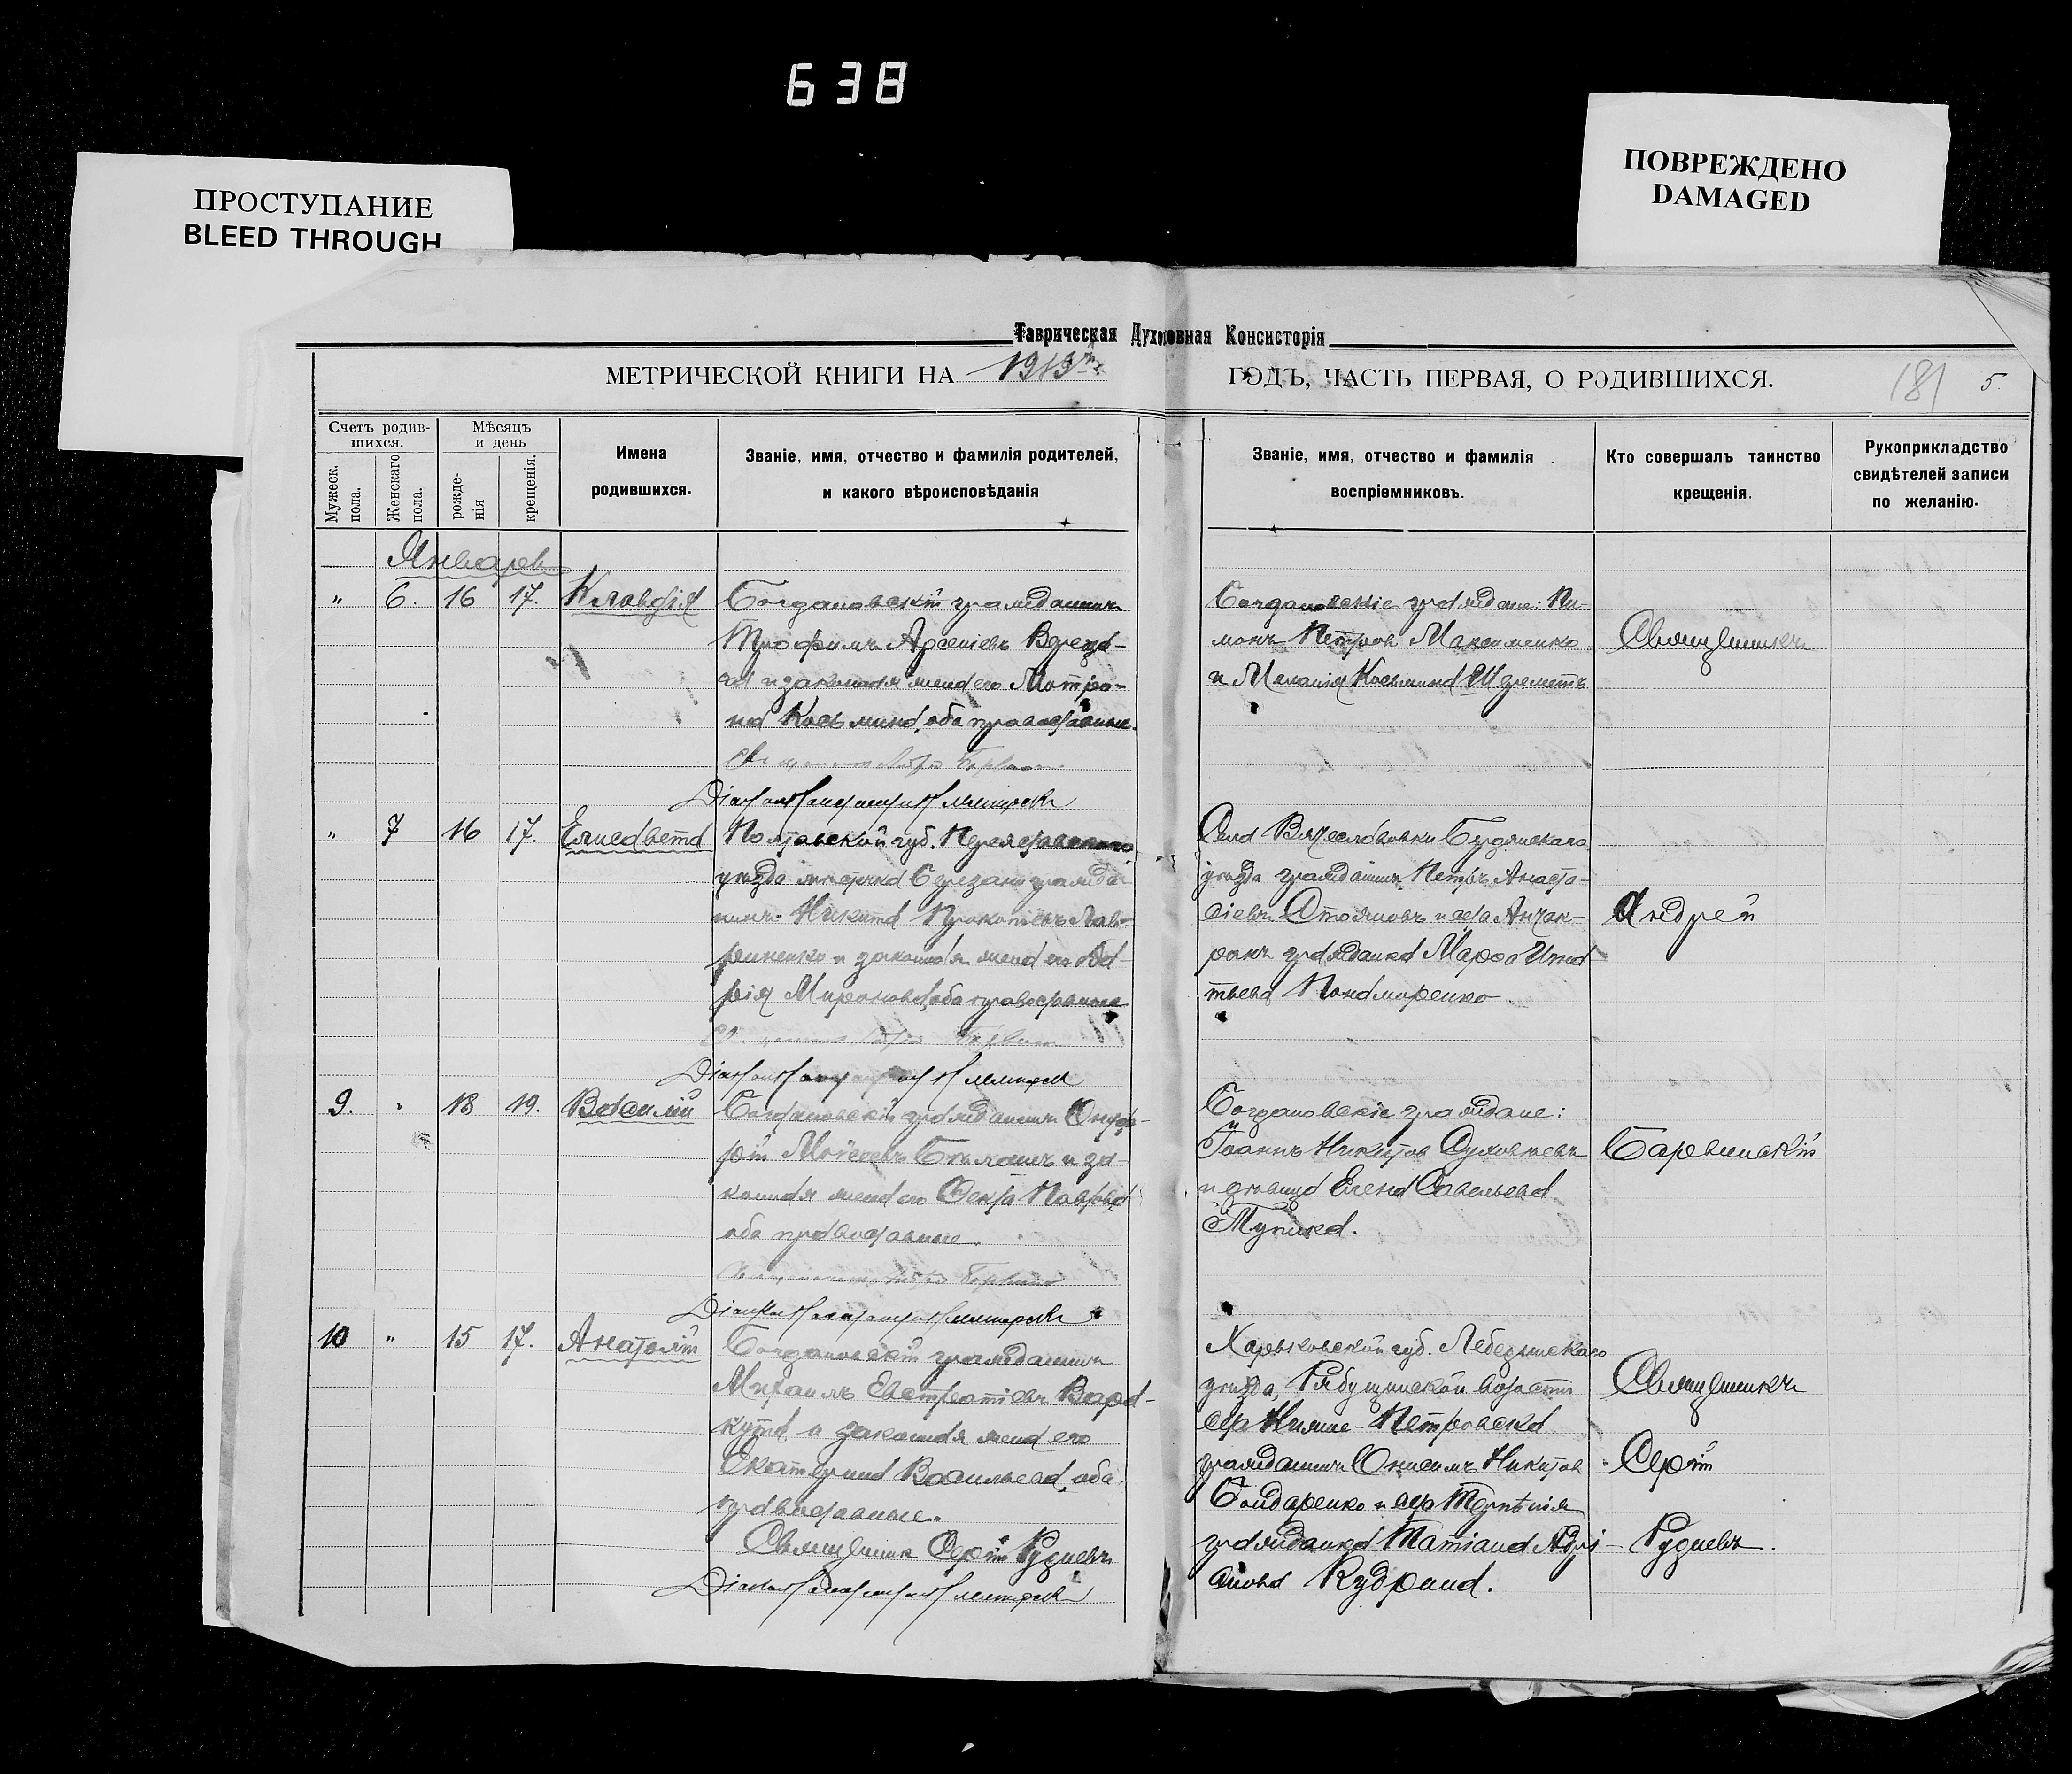 638
ПРОСТУПАНИЕ
BLEED THROUGH
ПОВРЕЖДЕНО
DAMAGED
Таврическая Духовная Консисторія
МЕТРИЧЕСКОЙ КНИГИ НА 1919 ГОДЪ, ЧАСТЬ ПЕРВАЯ, О РОДИВШИХСЯ.
181 5.
Счетъ родив-
шихся.
Мужеск.
пола.
Женскаго
пола.
Мѣсяцъ
и день
рожде-
нія
крещенія.
Имена
родившихся.
Званіе, имя, отчество и фамилія родителей,
и какого вѣроисповѣданія
Званіе, имя, отчество и фамилія
воспріемниковъ.
Кто совершалъ таинство
крещенія.
Рукоприкладство
свидѣтелей записи
по желанію.
Январь
" 6. 16 17. Клавдія
Богдановскій гражданинъ
Трофимъ Арсеніевъ
и законная жена его Матро-
на Косьмина, оба православные.
Богдановскіе граждане: Пи-
монъ Петровъ Максименко
и Меланія Косьмина Шереметъ
Священникъ
" 7 16 17. Елисавета
Полтавской губ. Переяславскаго
уѣзда мѣстечка Березани гражда-
нинъ Никита Прокопіевъ Лав-
риненко и законная жена его Да-
рія Миронова, оба православные
Села Вячеславовки Бердянскаго
уѣзда гражданинъ Петръ Анаста-
сіевъ Стояновъ и села Анчак-
ракъ гражданка Марѳа Игна-
тьева Пономаренко
Андрей
9. " 18 19. Василій
Богдановскій гражданинъ Онуф-
рій Моисеевъ и за-
конная жена его Ѳекла Павлова
оба православные.
Богдановскіе граждане:
Іоаннъ Никитовъ
и дѣвица Елена Савельева
Тупика.
Барвинскій
10 " 15 17. Анатолій
Богдановскій гражданинъ
Михаилъ Евстратіевъ Вара-
кута и законная жена его
Екатерина Васильева, оба
православные.
Священник Сергій Рудневъ
Харьковской губ. Лебединскаго
уѣзда, Рябушинской волости
села Нижне-Петровска
гражданинъ Онисимъ Никитовъ
Бондаренко и села Терпѣнія
гражданка Татіана Адрі-
анова Кудрина.
Священникъ
Сергій
Рудневъ.